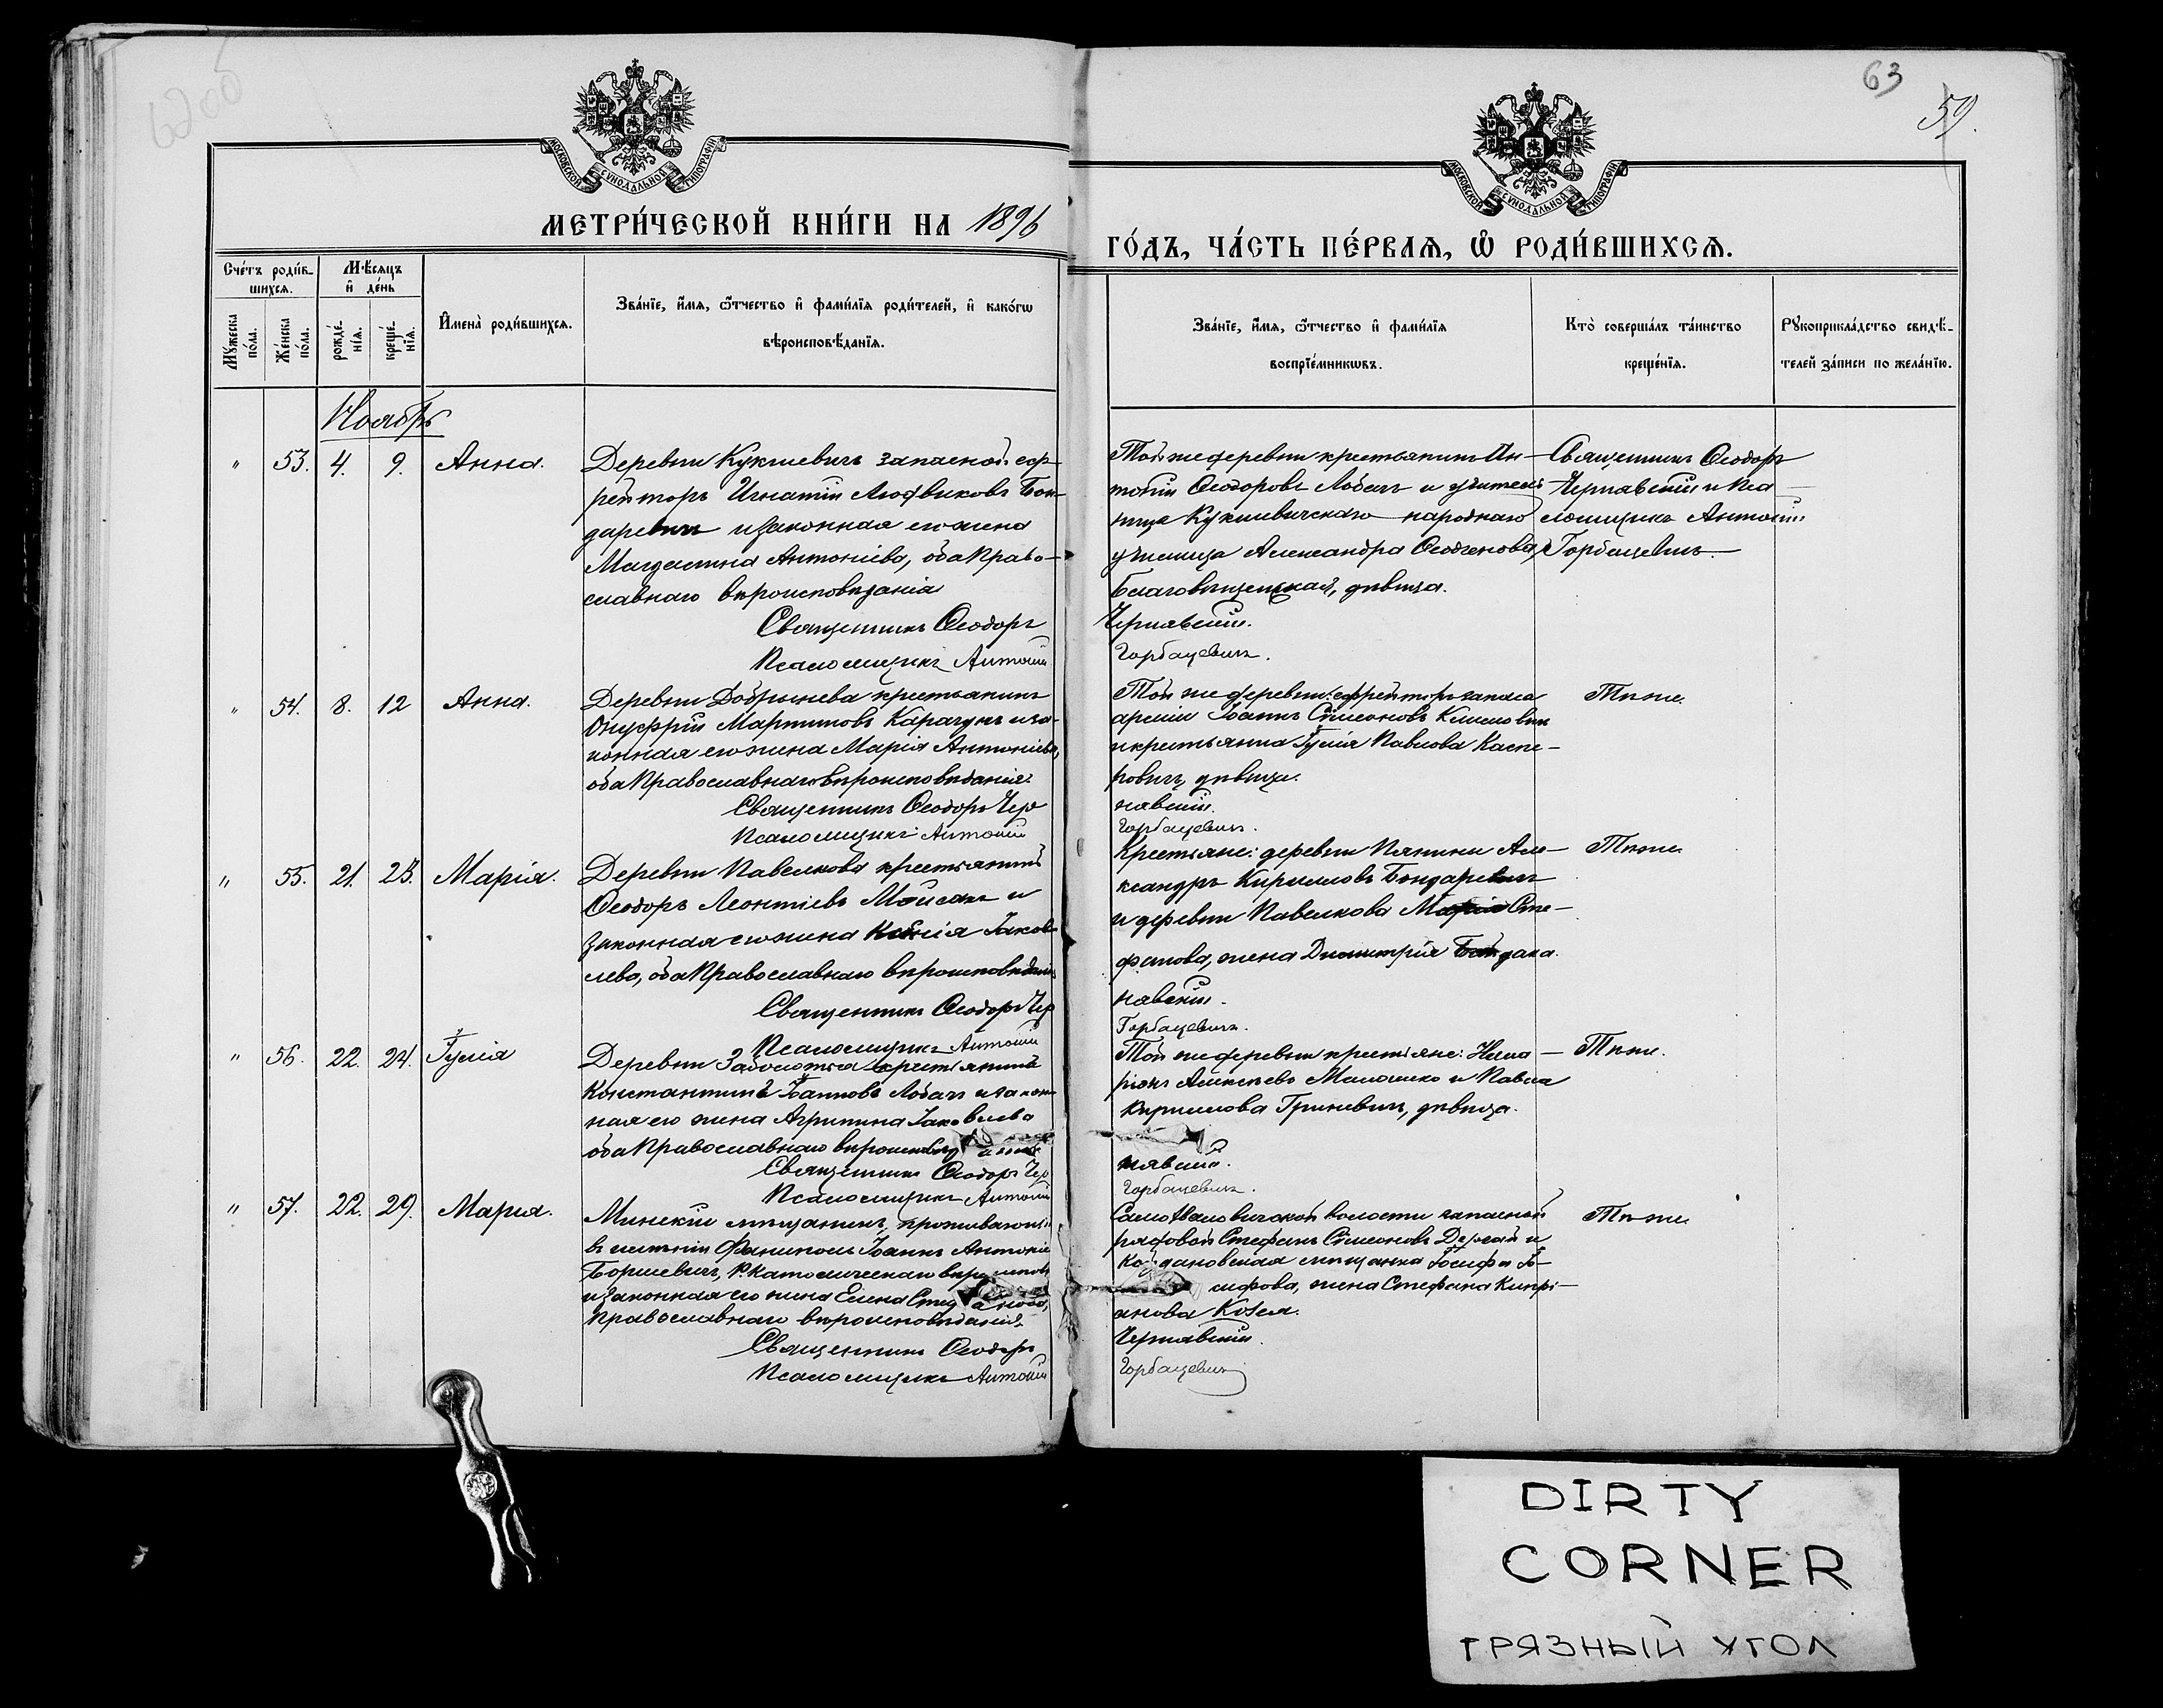 63
59.
МОСКОВСКОЙ СѴНОДАЛЬНОЙ ТИПОГРАФІИ
МОСКОВСКОЙ СѴНОДАЛЬНОЙ ТИПОГРАФІИ
МЕТРИ́ЧЕСКОЙ КНИ́ГИ НА 1896
ГО́ДЪ, ЧА́СТЬ ПЕ́РВАѦ, Ѿ РОДИ́ВШИХСѦ.
Сче́тъ роди́в-
шихсѧ.
Мѣ́сѧцъ
и҆ де́нь
Мꙋ́жеска
по́ла.
Же́нска
по́ла.
рожде́-
нїѧ.
креще́-
нїѧ.
И҆мена̀ роди́вшихсѧ.
Зва́нїе, и҆́мѧ, ѻ҆́тчество и҆ фами́лїѧ роди́телей, и҆ како́гѡ
вѣроисповѣ́данїѧ.
Зва́нїе, и҆́мѧ, ѻ҆́тчество и҆ фами́лїѧ
воспрїе́мникѡвъ.
Кто̀ соверша́лъ та́инство
креще́нїѧ.
Рꙋкоприкла́дство свидѣ́-
телей за́писи по жела́нїю.
Ноябрь
" 53. 4. 9. Анна.
Деревни Кукшевичъ запасной еф-
рейторъ Игнатій Людвиковъ Бон-
даревичъ и законная его жена
Магдалина Антоніева, оба Право-
славнаго вѣроисповѣданія
Священникъ Ѳеодоръ
Псаломщикъ Антоній
Той же деревни крестьянинъ Ан-
тоній Ѳеодоровъ Лобачъ и учитель-
ница Кукшевичскаго народнаго
училища Александра
Благовѣщенская, дѣвица.
Чернявскій.
Горбацевичъ.
Священникъ Ѳеодоръ
Чернявскій и Пса-
ломщикъ Антоній
Горбацевичъ.
" 54. 8. 12 Анна.
Деревни Добринева крестьянинъ
Онуфрій Мартиновъ Карачунъ и за-
конная его жена Марія Антоніева,
оба Православнаго вѣроисповѣданія.
Священникъ Ѳеодоръ Чер
Псаломщикъ Антоній
Той же деревни: ефрейторъ запаса
арміи Іоаннъ Симеоновъ Климовичъ
и крестьянка Іулія Павлова Каспе-
ровичъ, дѣвица.
нявскій.
Горбацевичъ.
Тѣ же.
" 55. 21. 23. Марія.
Деревни Павелкова крестьянинъ
Ѳеодоръ Леонтіевъ Мойсакъ и
законная его жена Ксенія Іаков-
лева, оба Православнаго вѣроисповѣданія
Священникъ Ѳеодоръ Чер
Псаломщикъ Антоній
Крестьяне: деревни Пянины Але-
ксандръ Кирилловъ Бондаревичъ
и деревни Павелкова Марія Сте-
фанова, жена Димитрія
нявскій.
Горбацевичъ.
Тѣ же.
" 56. 22. 24. Іулія
Деревни Заболотья крестьянинъ
Константинъ Іоанновъ Лобачъ и закон-
ная его жена Агрипина Іаковлева
оба Православнаго
Священникъ Ѳеодоръ Чер
Псаломщикъ Антоній
Той же деревни крестьяне: Ила-
ріонъ Алексѣевъ Малашко и Павла
Кириллова Гриневичъ, дѣвица.
нявскій.
Горбацевичъ.
Тѣ же.
" 57. 22. 29. Марія.
Минскій мѣщанинъ, проживающій
въ имѣніи Фаниполь Іоаннъ Антоніев
Боршевичъ, Р. Католическаго
и законная его жена Елена
Православнаго вѣроисповѣданія.
Священникъ Ѳеодоръ
Псаломщикъ Антоній
Самохваловичской волости запасной
рядовой Стефанъ Симеоновъ Держай и
Койдановская мѣщанка Іосифа Іо-
сифова, жена Стефана Кипрі-
анова Козел.
Чернявскій.
Горбацевичъ
Тѣ же.
DIRTY
CORNER
ГРЯЗНЫЙ УГОЛ